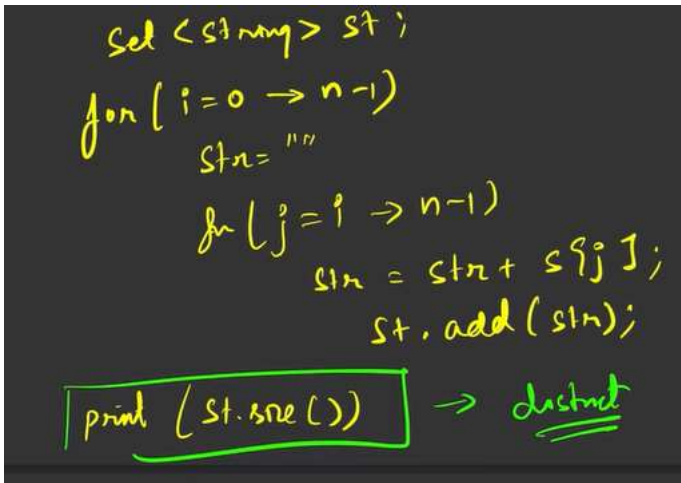 Set <string> st;
for (i = 0 → n-1)
str = ""
for (j = i → n-1)
str = str + s[j];
st.add(str);
print (st.size()) → distinct